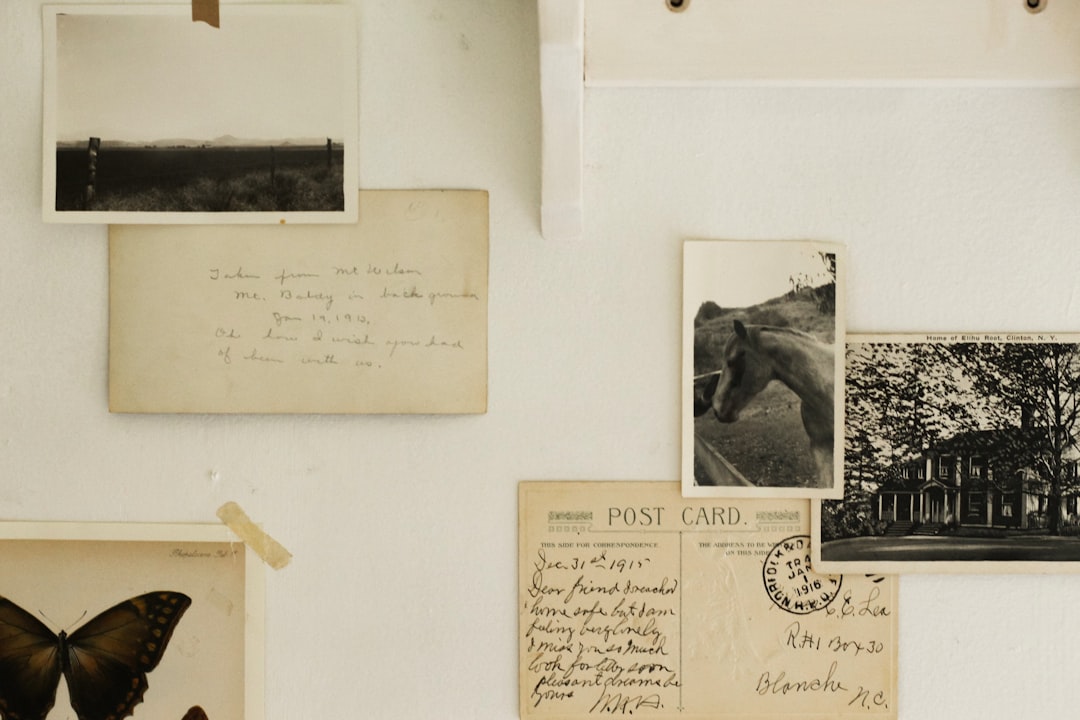 Taken from Mt Wilson
Mt. Baldy in back ground
Jan 19, 1913,
Oh how I wish you had
of been with us.
Home of Elihu Root, Clinton, N. Y.
POST CARD.
THIS SIDE FOR CORRESPONDENCE.
Dec. 31st 1915
Dear friend I reached
home safe but I am
feeling very lonely
I miss you so much
look for letter soon
pleasant dreams be
yours
THE ADDRESS TO BE
ON THIS SIDE
NORFOLK
TRA
JAN
1
1916
R.P.O.
C.C. Lea
R.#1 Box 30
Blanche N.C.